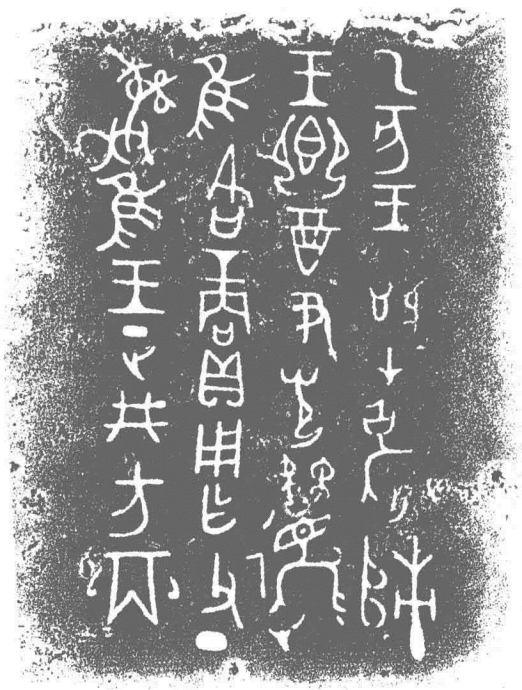 乙亥王才
王鄉酉尹光邐
隹各商貝用乍父丁
彝隹王正井方丙